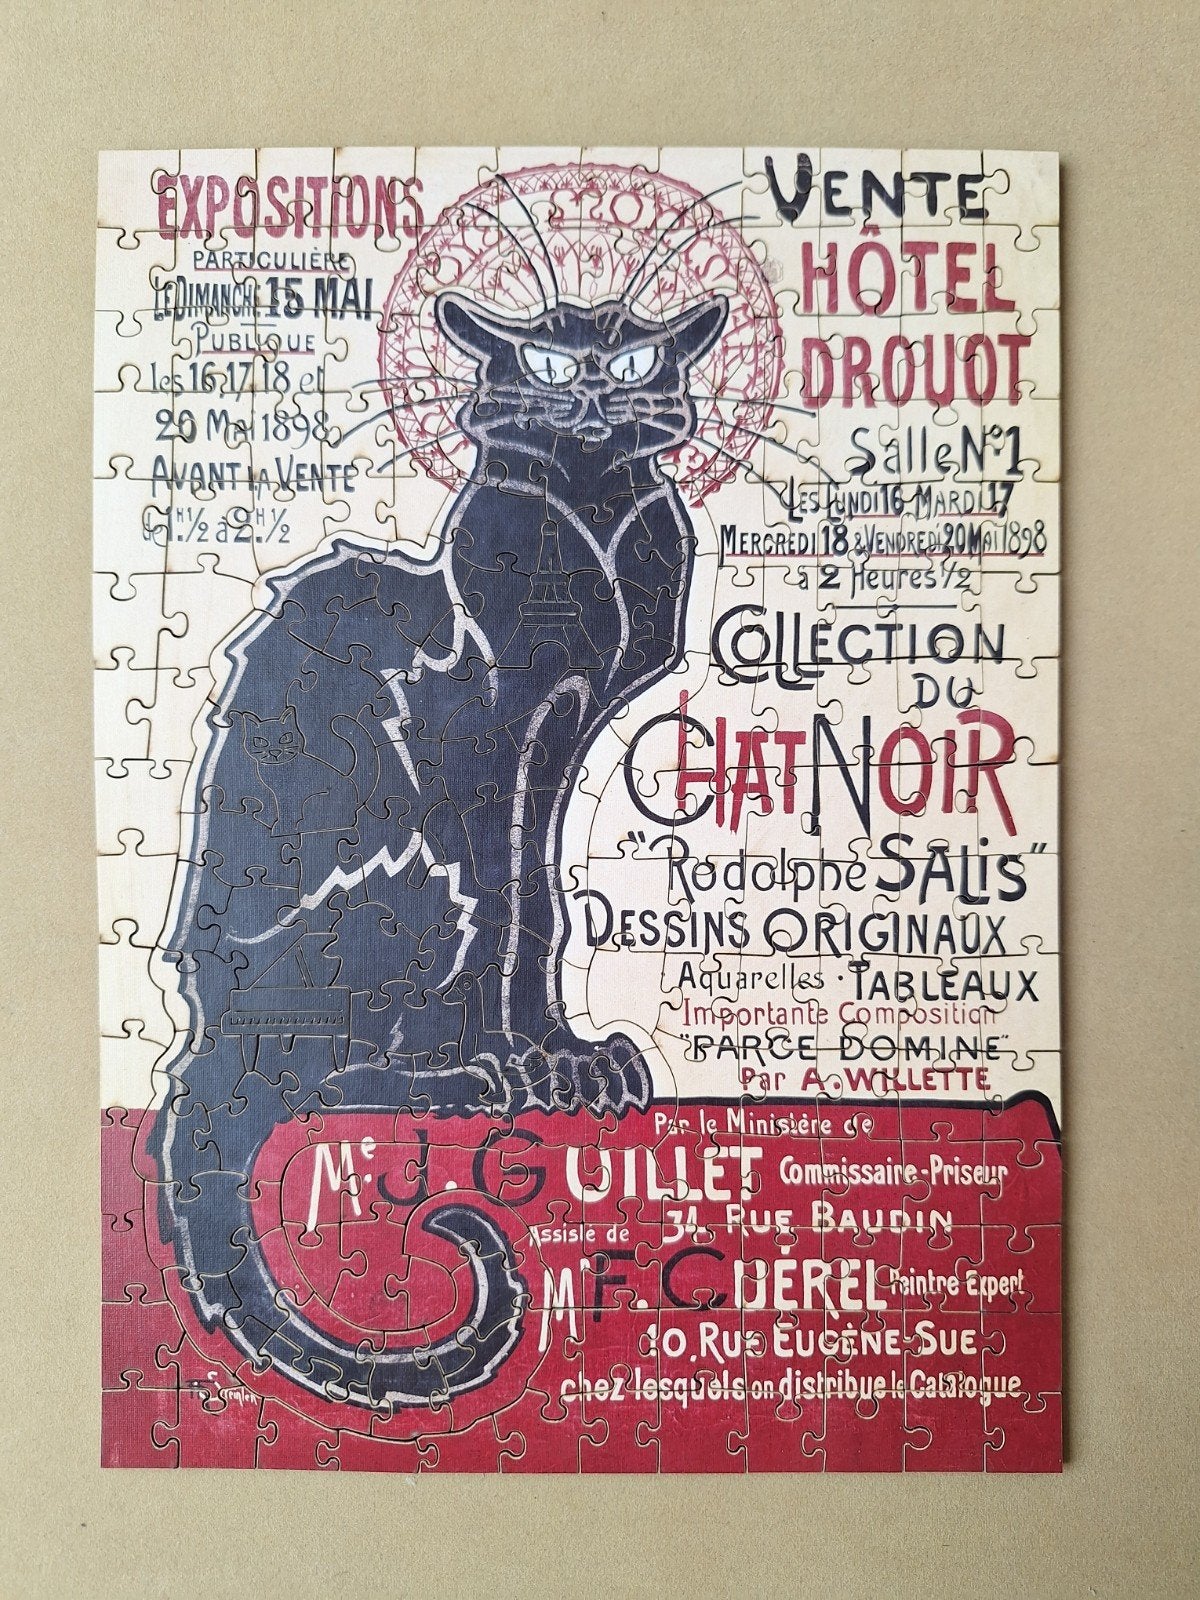 EXPOSITIONS
PARTICULIÈRE
LE DIMANCHE 15 MAI
PUBLIQUE
les 16, 17, 18 et
20 MAI 1898
AVANT LA VENTE
de 1.H½ à 2.H.½
VENTE
HÔTEL
DROUOT
Salle No. 1
LES LUNDI 16 MARDI 17
MERCREDI 18 & VENDREDI 20 MAI 1898
à 2 Heures ½
COLLECTION
DU
CHAT NOIR
"Rodolphe SALIS"
DESSINS ORIGINAUX
Aquarelles · TABLEAUX
Importante Composition
"PARCE DOMINE"
Par A. WILLETTE
Par le Ministère de
Me. J. GUILLET Commissaire-Priseur
31 RUE BAUDIN
Assisté de
Mr F. C DÉREL Peintre Expert
10, RUE EUGÈNE-SUE
chez lesquels on distribue le Catalogue